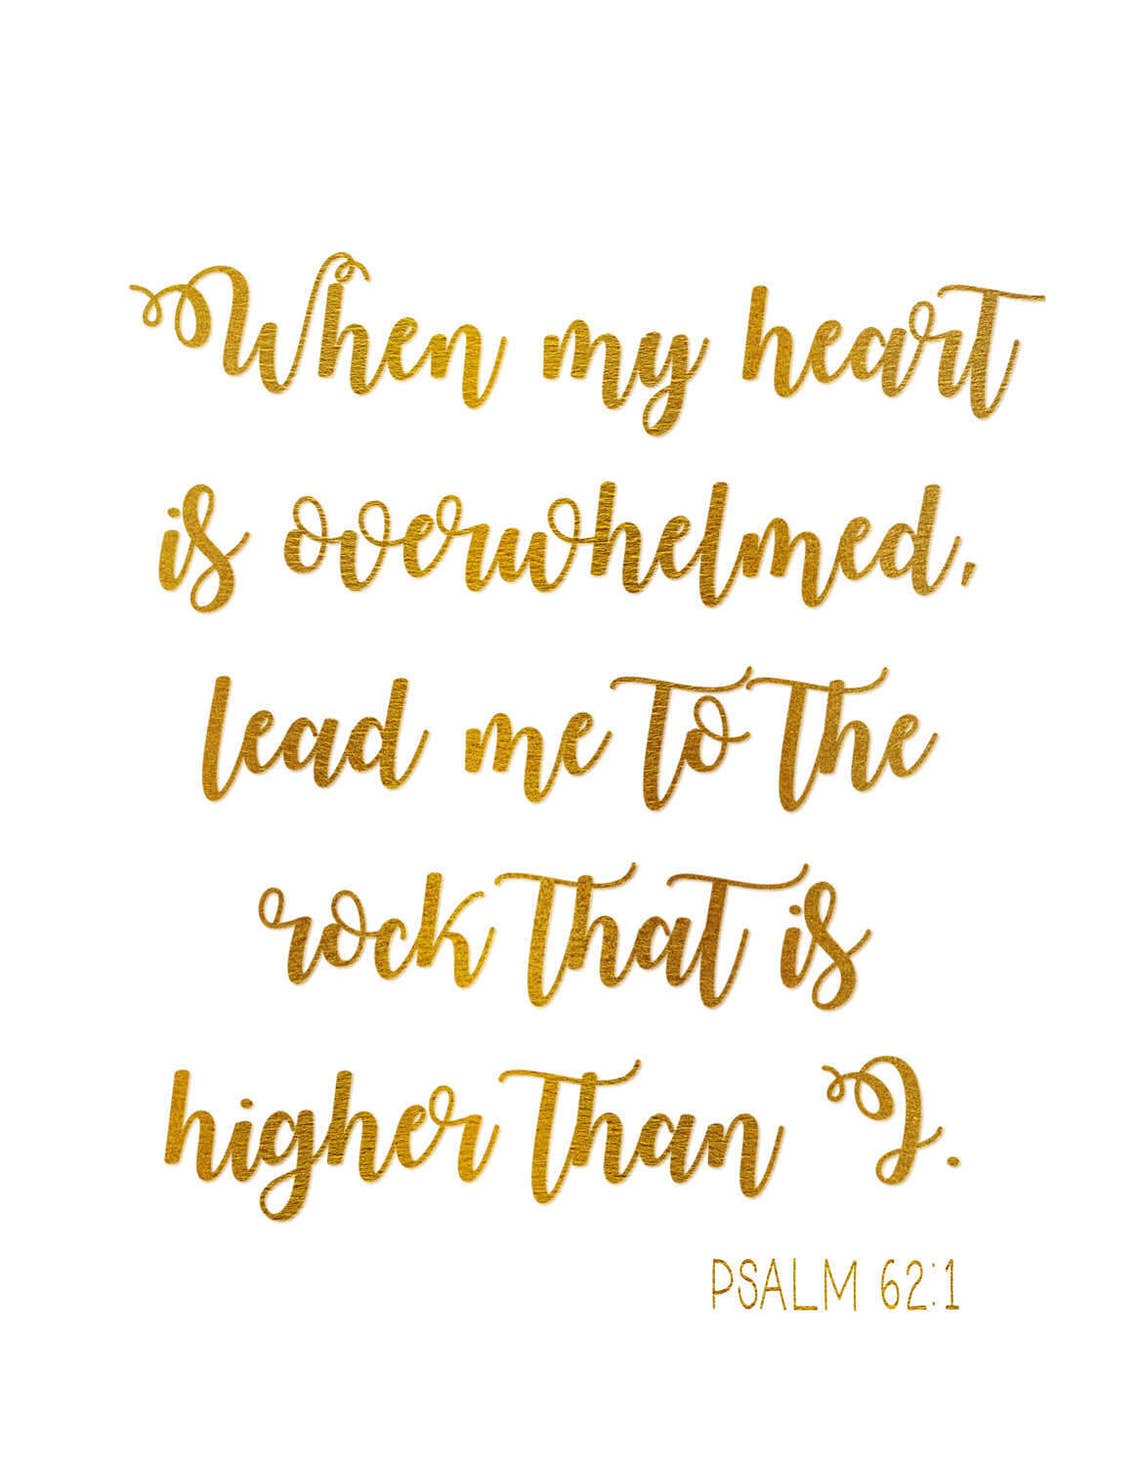 When my heart
is overwhelmed,
lead me to the
rock that is
higher than I.
PSALM 62:1